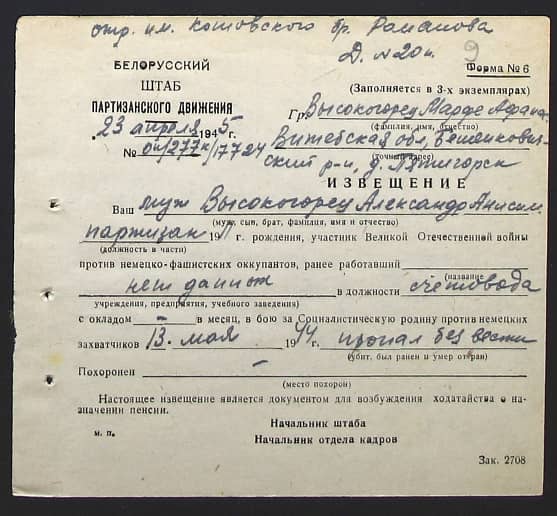 отр. им. Котовского бр. Романова
Д. N 20 п. 9
БЕЛОРУССКИЙ
ШТАБ
ПАРТИЗАНСКОГО ДВИЖЕНИЯ
23 апреля 1945 г.
№ оп/277к/7724
Форма № 6
(Заполняется в 3-х экземплярах)
Гр. Высокогорец Марфе Афана.
(фамилия, имя, отчество)
Витебская обл, Бешенкович-
(точный адрес)
ский р-н, д. Пятигорск
ИЗВЕЩЕНИЕ
Ваш муж Высокогорец Александр Анисим.
(муж, сын, брат, фамилия, имя и отчество)
партизан 19 г. рождения, участник Великой Отечественной войны
(должность в части)
против немецко-фашистских оккупантов, ранее работавший
(название
нет данных в должности счетовода
учреждения, предприятия, учебного заведения)
с окладом — в месяц, в бою за Социалистическую родину против немецких
захватчиков 13. мая 1944 г. пропал без вести
(убит, был ранен и умер от ран)
Похоронен —
(место похорон)
Настоящее извещение является документом для возбуждения ходатайства о на-
значении пенсии.
Начальник штаба
м. п. Начальник отдела кадров
Зак. 2708